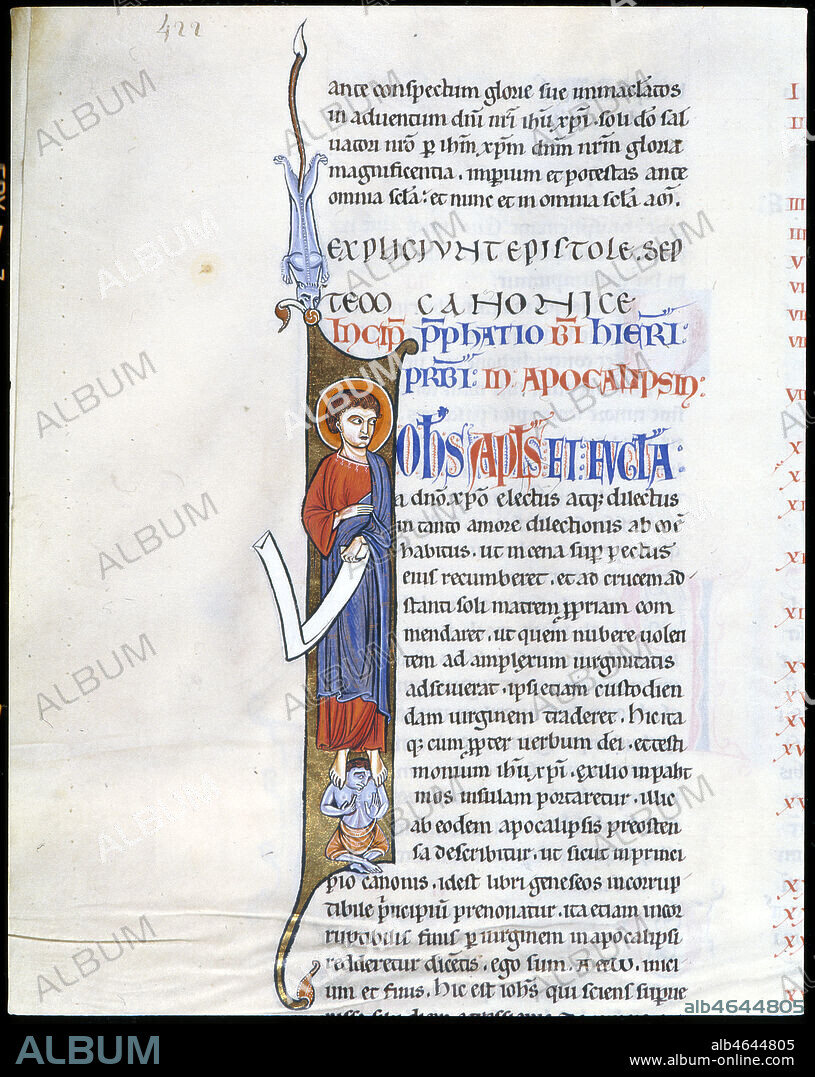 422
ante conspectum glorie sue immaclatos
in adventum dñi nr̄i ihū xp̄i. soli dō sal
vatori nr̄o p̄ ihm̄ xpm̄ dnm̄ nr̄m gloria
magnificentia. imperium et potestas ante
omnia sclā: et nunc et in omnia sclā. am̄.
EXPLICIVNT EPISTOLE. SEP
TEM CANONICE
INCIP̄ P̄PHATIO B̄I HIER̄I:
PRB̄I: IN APOCALIPSIN:
OH̄S APL̄S ET EVGL̄TA:
a dnō xp̄o electus atq; dilectus
in tanto amore dilectionis ab
habitus. ut in cena sup̄ pectus
eius recumberet. et ad crucem ad
stanti soli matrem p̄priam com
mendaret. ut quem nubere volen
tem ad amplexum virginitatis
adsciverat. ipsi etiam custodien
dam virginem traderet. Hic ita
q; cum p̄pter verbum dei. et testi
monium ihū xp̄i. exilio in path
mos insulam portaretur. illic
ab eodem apocalipsis preosten
sa describitur. ut sicut in princi
pio canonis. idest libri geneseos incorrup
tibile p̄ncipiū prenotatur. ita etiam incor
ruptibilis finis p̄ virginem in apocalipsi
redderetur dicētis. ego sum. A et ω. inici
um et finis. Hic est iohs̄ qui sciens supue
I
II
III
VI
X
XI
ALBUM
alb4644805
ALBUM
alb4644805
www.album-online.com